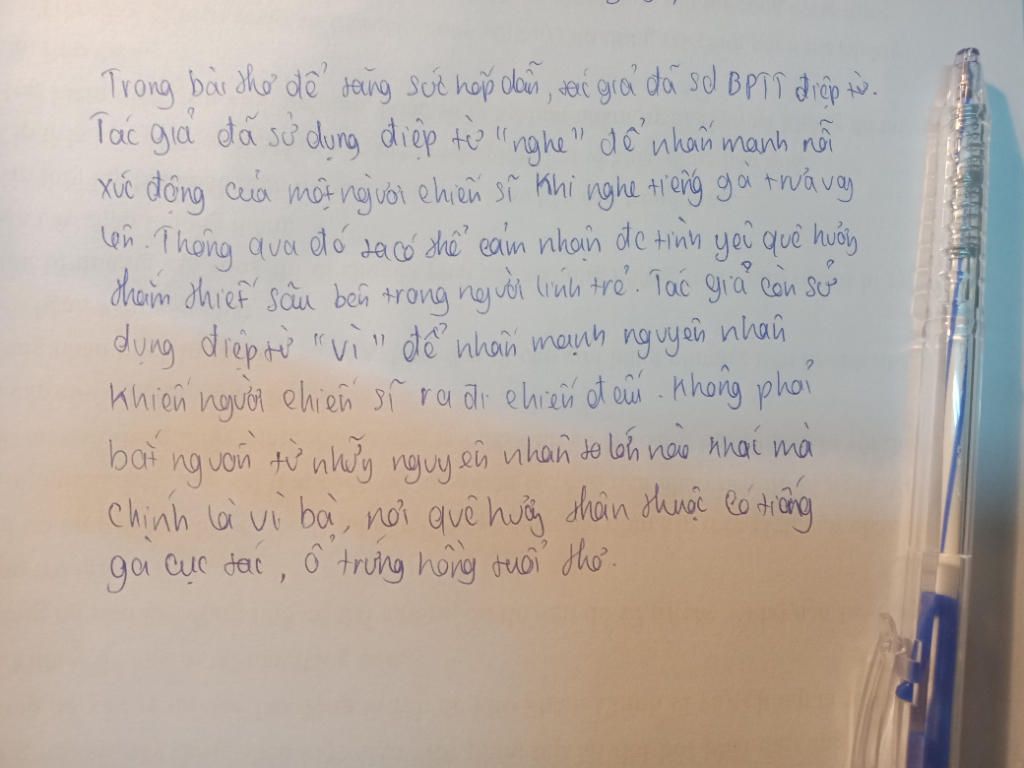 Trong bài thơ để tăng sức hấp dẫn, tác giả đã sd BPTT điệp từ.
Tác giả đã sử dụng điệp từ "nghe" để nhấn mạnh nỗi
xúc động của một người chiến sĩ khi nghe tiếng gà trưa vag
lên. Thông qua đó ta có thể cảm nhận đc tình yêu quê hương
thắm thiết sâu bên trong người lính trẻ. Tác giả còn sử
dụng điệp từ "vì" để nhấn mạnh nguyên nhân
khiến người chiến sĩ ra đi chiến đấu. Không phải
bắt nguồn từ những nguyên nhân to lớn nào khác mà
chính là vì bà, nơi quê hương thân thuộc có tiếng
gà cục tác, ổ trứng hồng tuổi thơ.